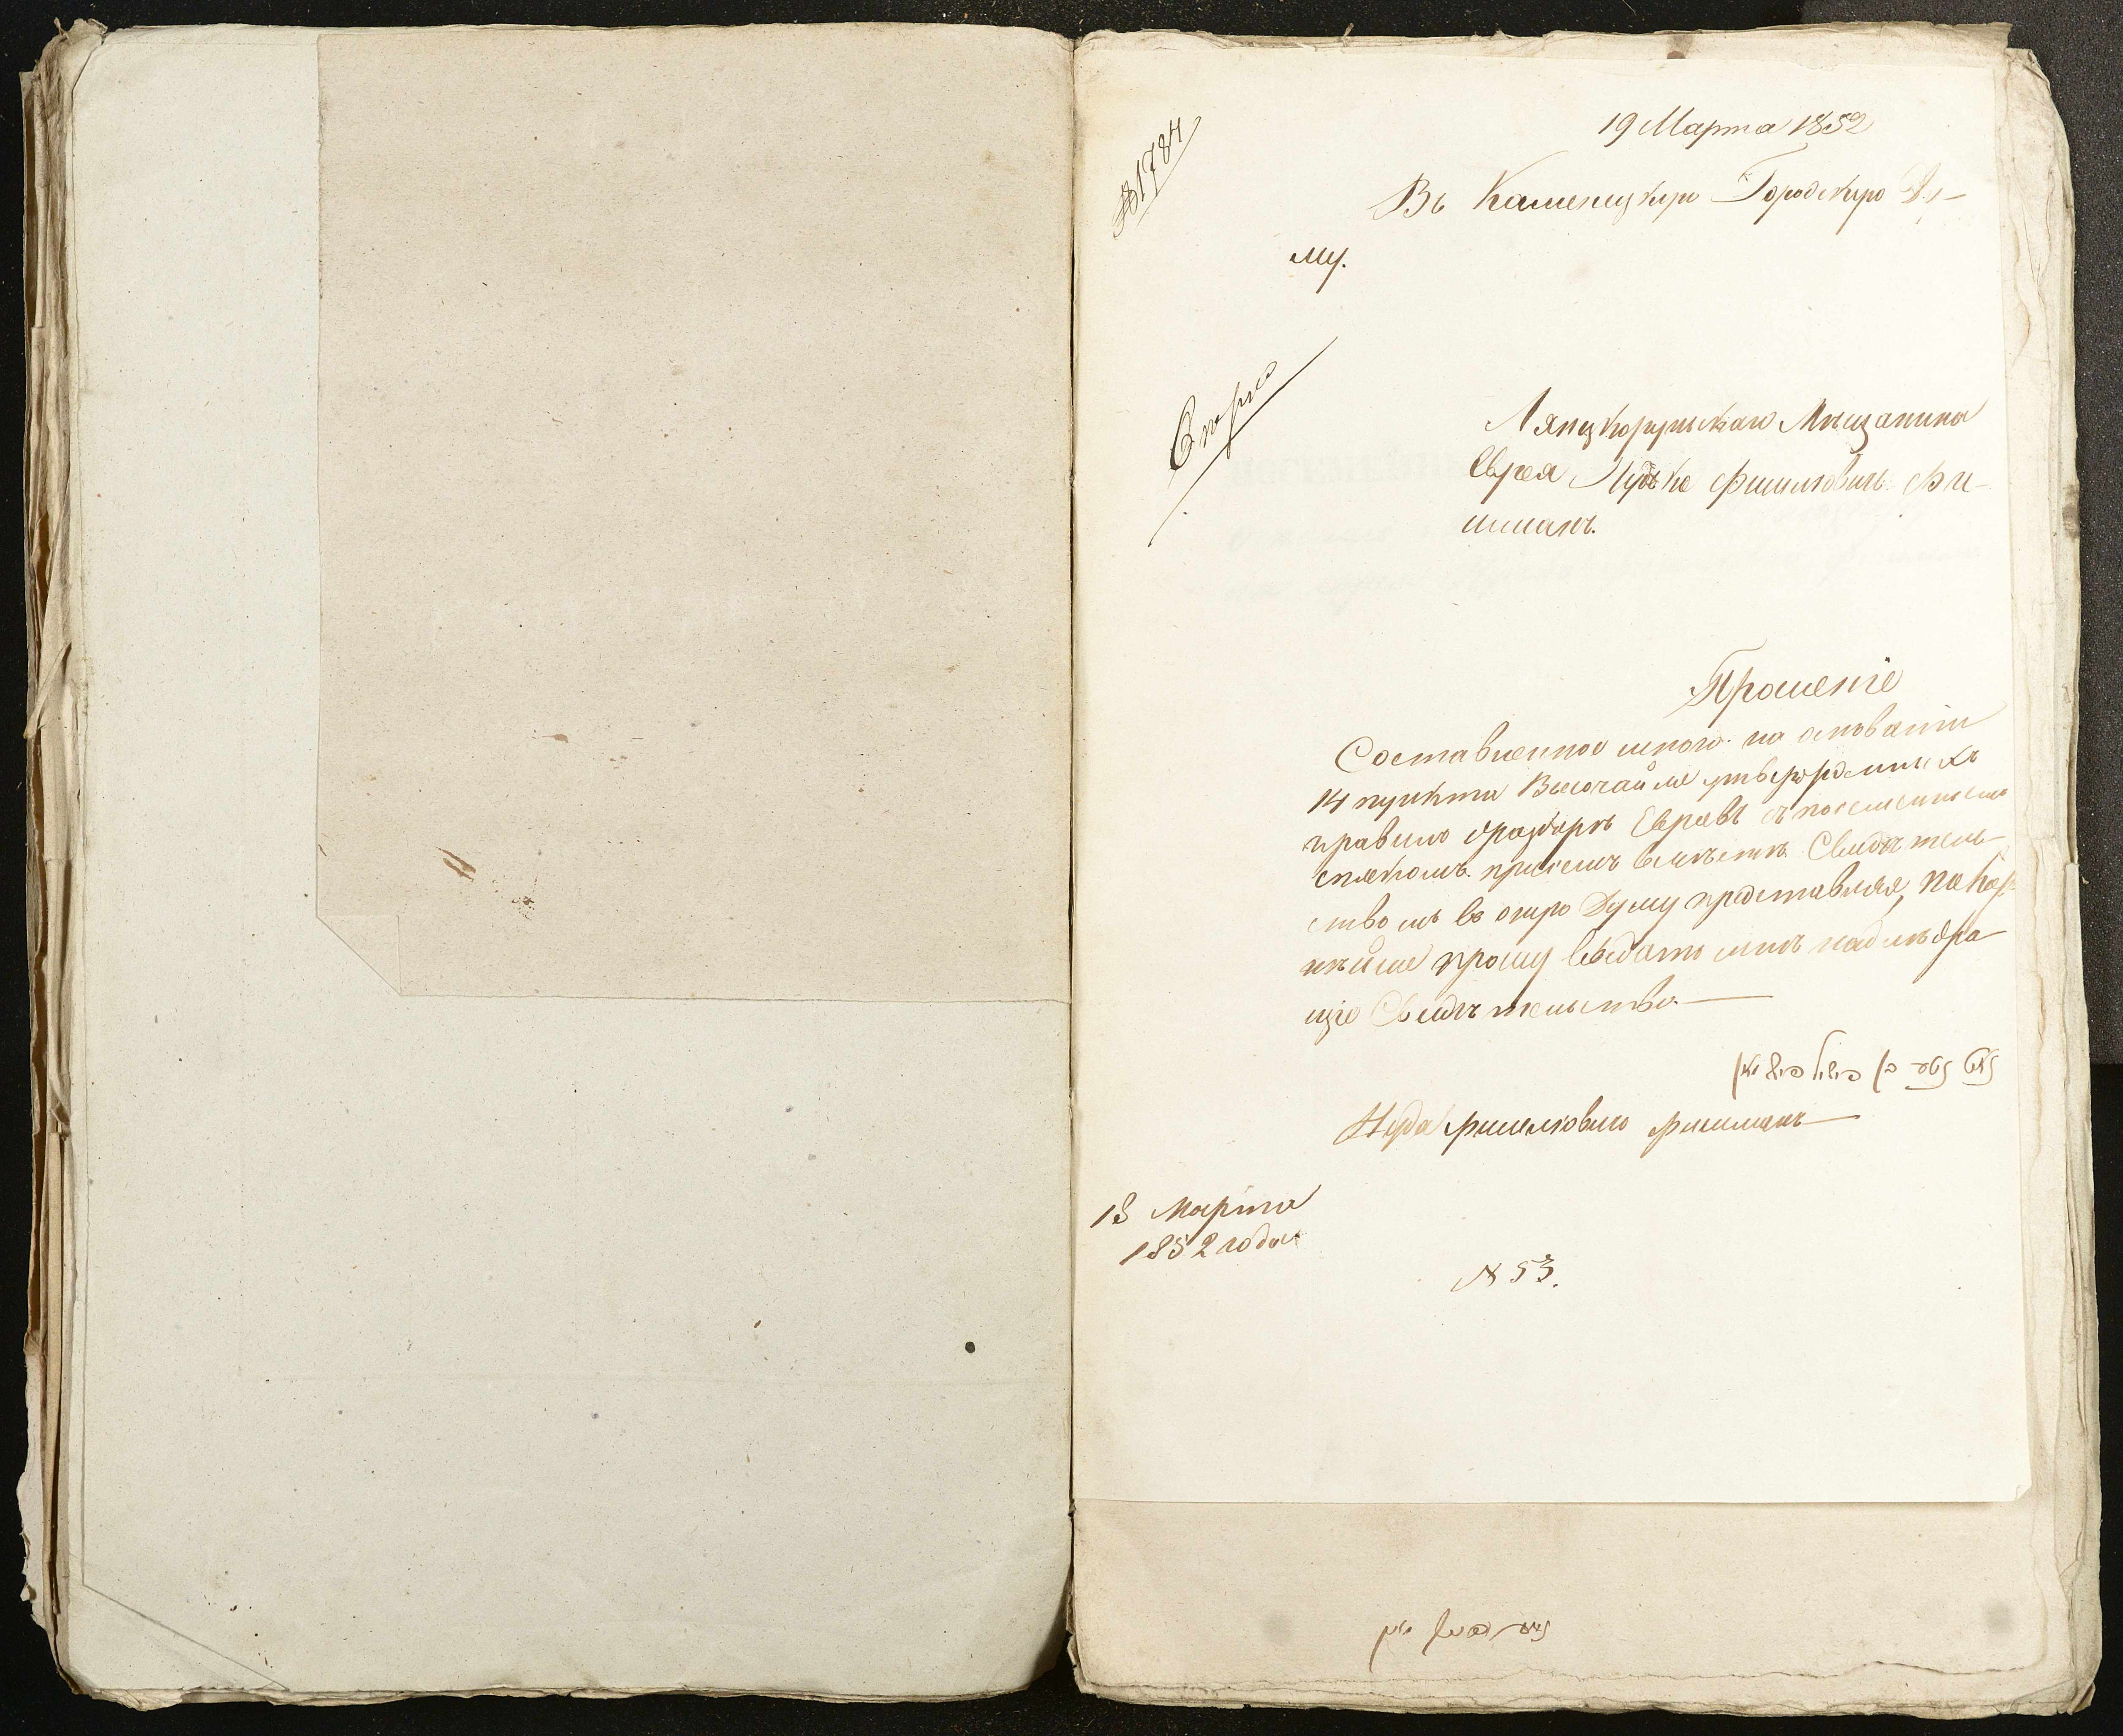 № 1784
19 Марта 1852
Въ Каменецкую Городскую Ду-
му.
Лянцкорунскаго Мѣщанина
Еврея Фишелiовичъ Фи-
шманъ.
Прошеніе
Составленное мною на основаніи
14 пункта Высочайше утвержденныхъ
правилъ о разборѣ Евреевъ съ посемейнымъ
спискомъ при семъ вмѣстѣ Свидѣтель-
ствомъ въ оную Думу представляя, покор-
нѣйше прошу выдать мнѣ надлежа-
щіе Свидѣтельство.
פישל פישמאן
Фишелiовичъ Фишманъ
18 Марта
1852 года
№ 53.